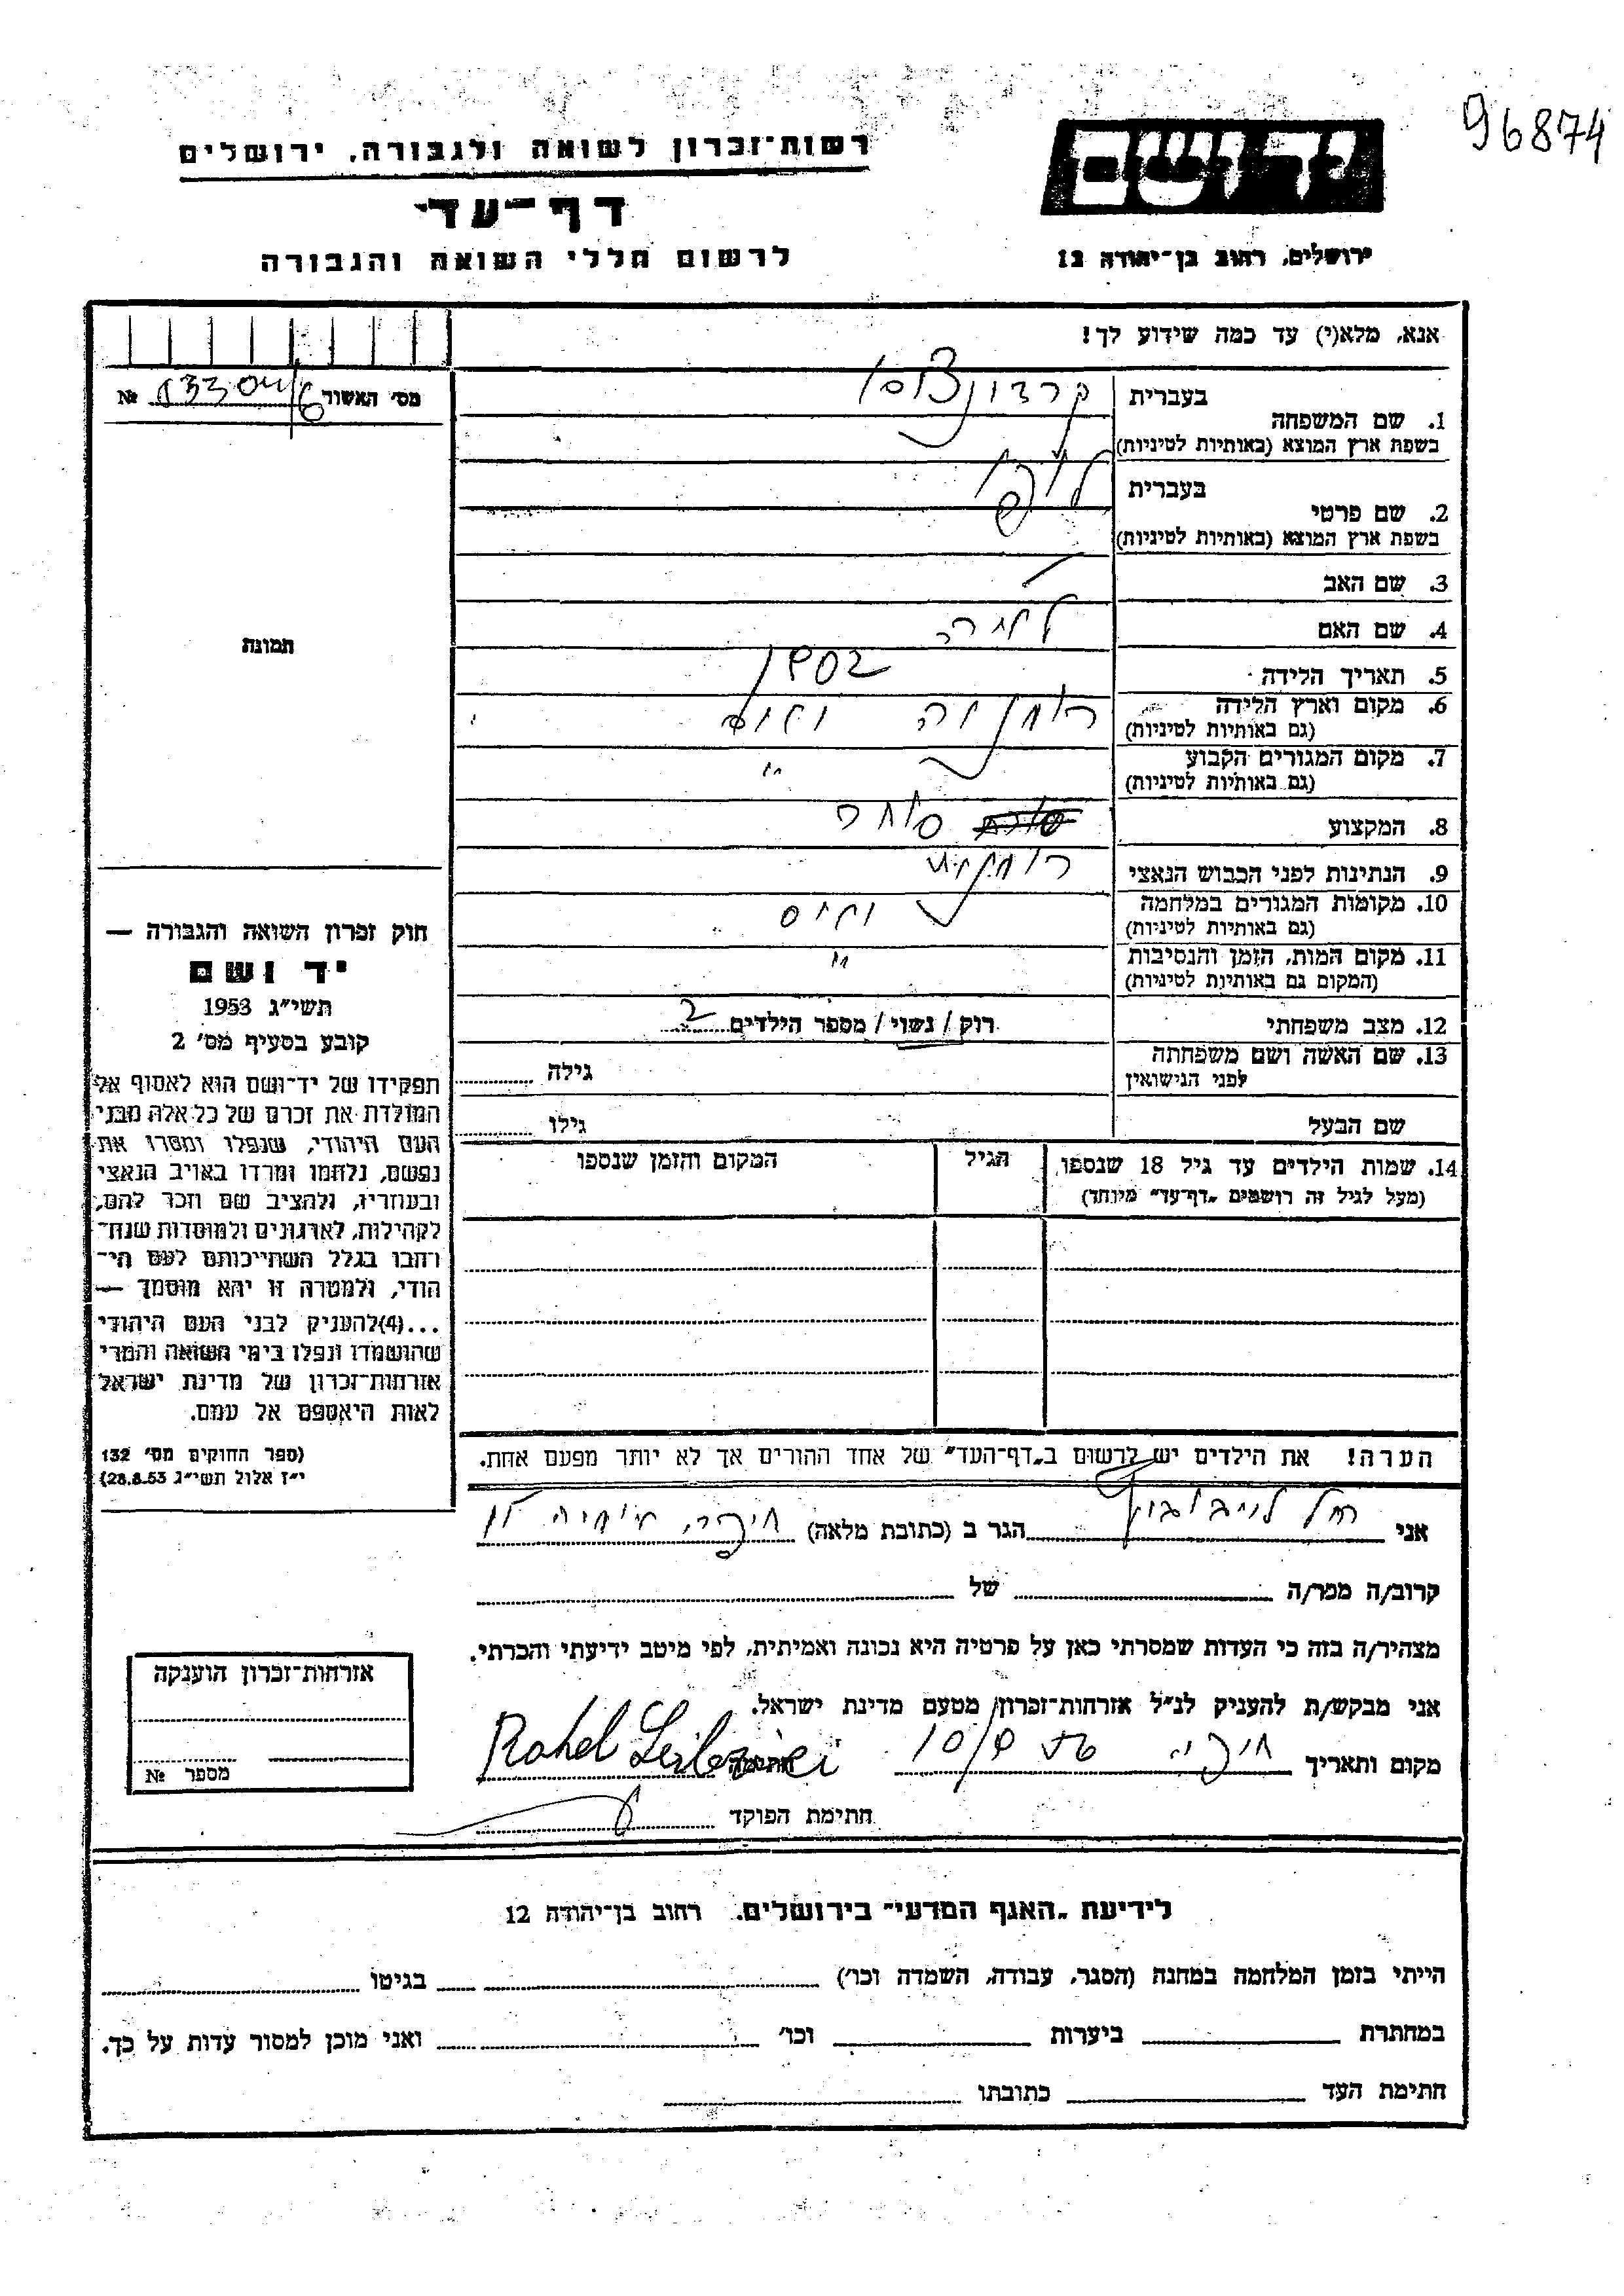 96874
רשות־זכרון לשואה ולגבורה, ירושלים
יד ושם
דף־עד
ירושלים, רחוב בן־יהודה 12
לרשום חללי השואה והגבורה
אנא, מלא(י) עד כמה שידוע לך!
מס׳ האשור №
בעברית
1. שם המשפחה
בשפת ארץ המוצא (באותיות לטיניות)
בעברית
2. שם פרטי
בשפת ארץ המוצא (באותיות לטיניות)
3. שם האב
4. שם האם
תמונה
5. תאריך הלידה 1902
6. מקום וארץ הלידה
(גם באותיות לטיניות)
7. מקום המגורים הקבוע "
(גם באותיות לטיניות)
8. המקצוע סוחר
9. הנתינות לפני הכבוש הנאצי
10. מקומות המגורים במלחמה
(גם באותיות לטיניות)
11. מקום המות, הזמן והנסיבות "
(המקום גם באותיות לטיניות)
12. מצב משפחתי רוק / נשוי / מספר הילדים 2
13. שם האשה ושם משפחתה גילה
לפני הנישואין
שם הבעל גילו
14. שמות הילדים עד גיל 18 שנספו הגיל המקום והזמן שנספו
(מעל לגיל זה רושמים „דף־עד״ מיוחד)
חוק זכרון השואה והגבורה —
יד ושם
תשי״ג 1953
קובע בסעיף מס׳ 2
תפקידו של יד־ושם הוא לאסוף אל
המולדת את זכרם של כל אלה מבני
העם היהודי, שנפלו ומסרו את
נפשם, נלחמו ומרדו באויב הנאצי
ובעוזריו, ולהציב שם וזכר להם,
לקהילות, לארגונים ולמוסדות שנח־
רחבו בגלל השתייכותם לעם הי־
הודי, ולמטרה זו יהא מוסמך —
...(4)להעניק לבני העם היהודי
שהושמדו ונפלו בימי השואה והמרי
אזרחות־זכרון של מדינת ישראל
לאות היאספם אל עמם.
(ספר החוקים מס׳ 132
י״ז אלול תשי״ג 28.8.53)
הערה! את הילדים יש לרשום ב„דף־העד״ של אחד ההורים אך לא יותר מפעם אחת.
אני רחל לייבוביץ הגר ב (כתובת מלאה) חיפה,
קרוב/ה מכר/ה של
מצהיר/ה בזה כי העדות שמסרתי כאן על פרטיה היא נכונה ואמיתית, לפי מיטב ידיעתי והכרתי.
אני מבקש/ת להעניק לנ״ל אזרחות־זכרון מטעם מדינת ישראל.
מקום ותאריך חיפה 10/9 חתימה Rahel Leibovici
חתימת הפוקד
אזרחות־זכרון הוענקה
מספר №
לידיעת „האגף המדעי״ בירושלים, רחוב בן־יהודה 12
הייתי בזמן המלחמה במחנה (הסגר, עבודה, השמדה וכו׳) בגיטו
במחתרת ביערות וכו׳ ואני מוכן למסור עדות על כך.
חתימת העד כתובתו